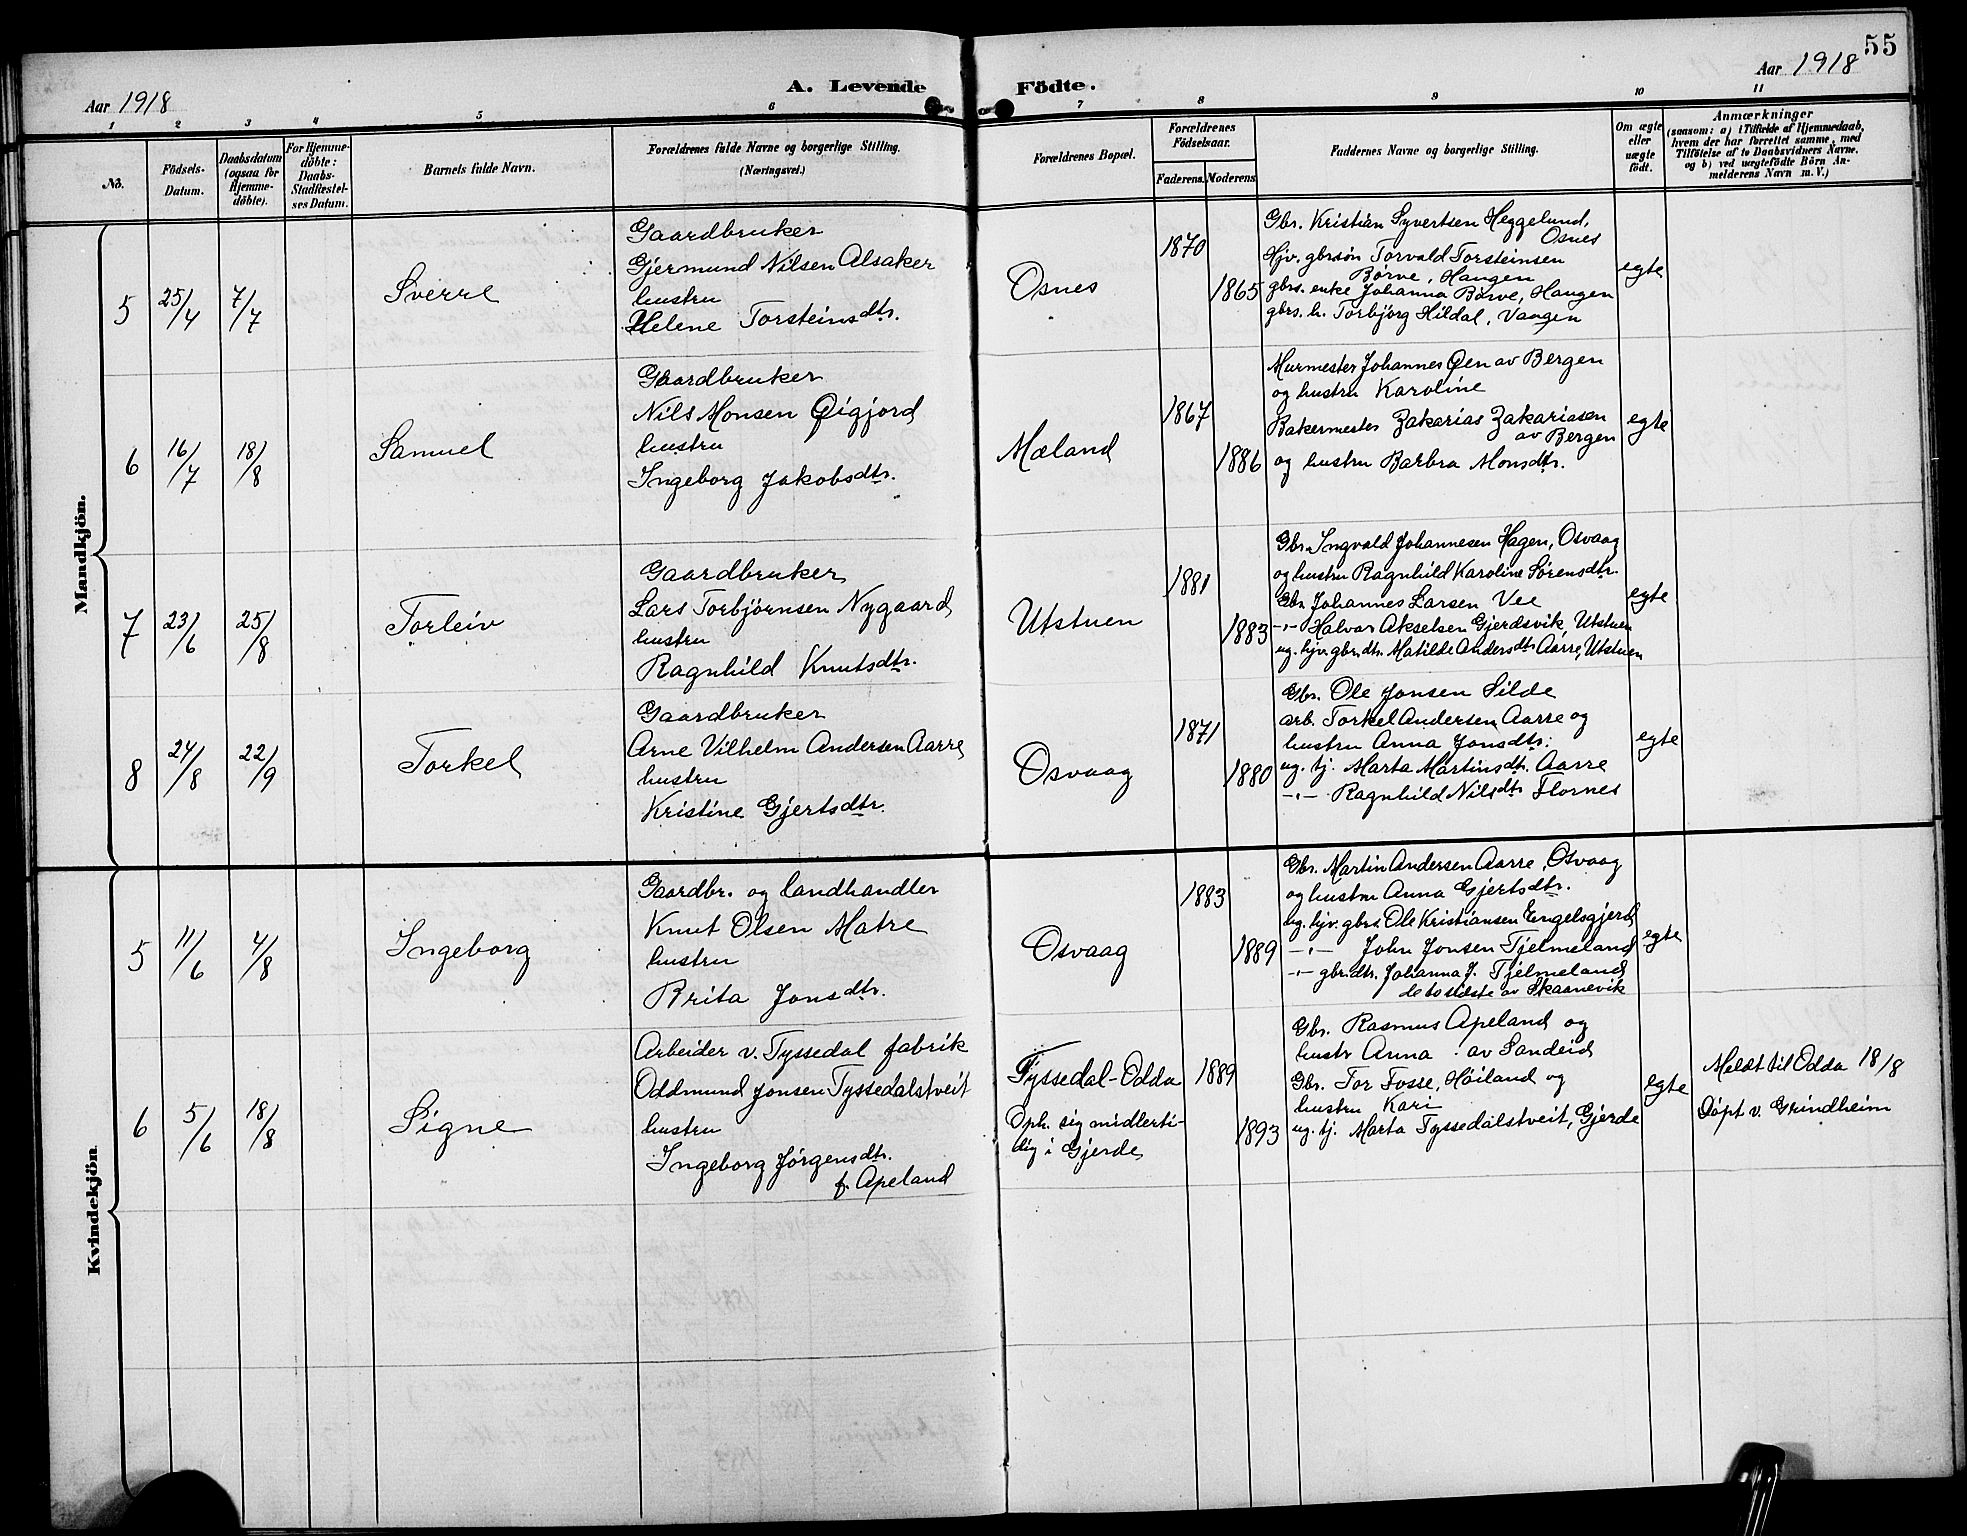 55
Aar 1918
A. Levende Födte.
Aar 1918
1 2 3 4 5 6 7 8 9 10 11
No.
Födsels-Datum.
Daabsdatum (ogsaa for Hjemme-döbte).
For Hjemme-döbte: Daabs-Stadfæstel-ses Datum.
Barnets fulde Navn.
Forældrenes fulde Navne og borgerlige Stilling.
(Næringsvei.)
Forældrenes Bopæl.
Forældrenes Födselsaar.
Faderens. Moderens.
Faddernes Navne og borgerlige Stilling.
Om ægte eller uægte födt.
Anmærkninger
(saasom: a) i Tilfælde af Hjemmedaab,
hvem der har forrettet samme, med
Tilföielse af to Daabsvidners Navne.
og b) ved uægtefödte Börn An-
melderens Navn m. V.)
Mandkjön.
5 25/4 7/7 Sverre
Gaardbruker
Gjermund Nilsen Alsaker
hustru
Helene Torsteinsdtr.
Osnes
1870
1865
Gbr. Kristian Syvertsen Heggelund,
Osnes
Hjv. gbrsön Torvald Torsteinsen
Börve, Haugen
gbrs. enke Johanna Börve, Haugen
gbrs. h. Torbjörg Hildal, Vaagen
egte
6 16/7 18/8 Samuel
Gaardbruker
Nils Monsen Øigjord
hustru
Ingeborg Jakobsdtr.
Mæland
1867
1886
Murmester Johannes Øen av Bergen
og hustru Karoline
Bakermester Zakarias Zakariasen
av Bergen
og hustru Barbra Monsdtr.
egte
7 23/6 25/8 Torleiv
Gaardbruker
Lars Torbjørnsen Nygaard
hustru
Ragnhild Knutsdtr.
Utstuen
1881
1883
Gbr. Ingvald Johannesen Hagen, Osvaag
og hustru Ragnhild Karoline Sørensdtr.
Gbr. Johannes Larsen Vee
-"- Halvar Akselsen Gjerdsvik, Utstuen
ug. hjv. gbr.dtr. Matilde Andersdtr. Aarre, Utstuen
egte
8 24/8 22/9 Torkel
Gaardbruker
Arne Vilhelm Andersen Aarre
hustru
Kristine Gjertsdtr.
Osvaag
1871
1880
Gbr. Ole Jonsen Silde
arb. Torkel Andersen Aarre og
hustru Anna Jonsdtr.
ug. tj. Marta Martinsdtr. Aarre
-"- Ragnhild Nilsdtr. Flornes
egte
Kvindekjön
5 11/6 4/8 Ingeborg
Gaardbr. og landhandler
Knut Olsen Matre
hustru
Brita Jonsdtr.
Osvaag
1883
1889
Gbr. Martin Andersen Aarre, Osvaag
og hustru Anna Gjertsdtr.
ug. hjv. gbrs. Ole Kristiansen Engelsgjerd
-"- John Jonsen Tjelmeland
-"- gbr.dtr. Johanna J. Tjelmeland
de to sidste av Skaanevik
egte
6 5/6 18/8 Signe
Arbeider v. Tyssedal fabrik
Oddmund Jonsen Tyssedalstveit
hustru
Ingeborg Jørgensdtr.
f. Apeland
Tyssedal-Odda
Oph. sig midlerti-
dig i Gjerde
1889
1893
Gbr. Rasmus Apeland og
hustr Anna av Sandeid
Gbr. Tor Fosse, Høiland og
hustru Kari
ug. tj. Marta Tyssedalstveit, Gjerde
egte
Meldt til Odda 18/8
Döpt v. Grindheim